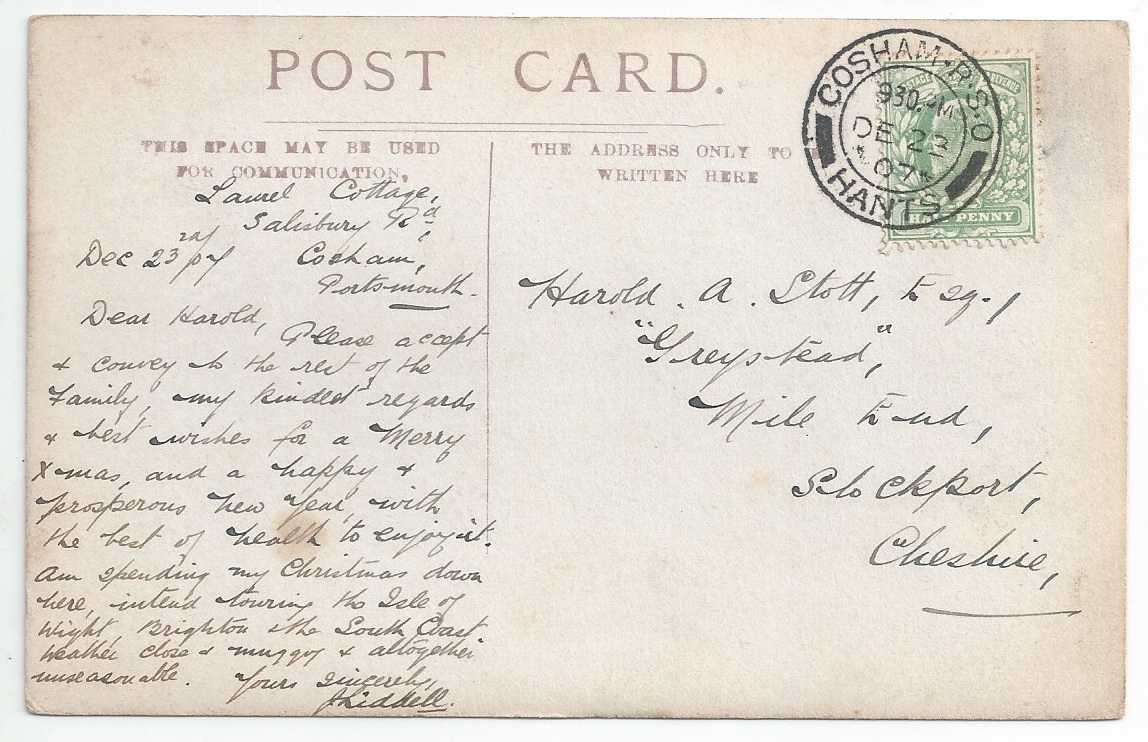 POST CARD.
THIS SPACE MAY BE USED
FOR COMMUNICATION,
THE ADDRESS ONLY TO
WRITTEN HERE
COSHAM·R.S.O
930 PM
DE 22
07
HANTS
HALF PENNY
Laurel Cottage,
Salisbury Rd,
Dec 23rd 07 Cosham,
Portsmouth.
Dear Harold,
Please accept
& convey to the rest of the
Family, my kindest regards
& best wishes for a Merry
Xmas, and a happy &
prosperous New Year, with
the best of health to enjoy it.
Am spending my Christmas down
here, intend touring the Isle of
Wight, Brighton & the South Coast
Weather close & muggy & altogether
unseasonable. Yours Sincerely,
JLiddell.
Harold. A. Stott, Esq.,
"Greystead",
Mile End,
Stockport,
Cheshire,